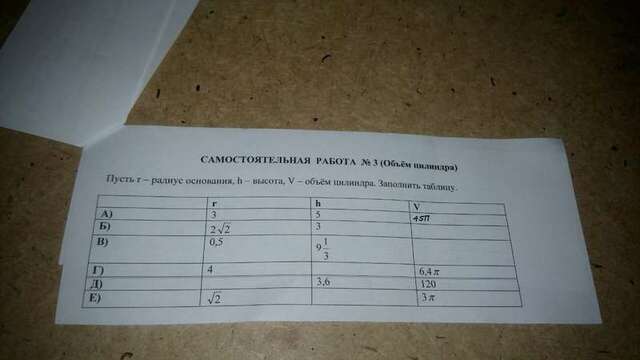 САМОСТОЯТЕЛЬНАЯ РАБОТА № 3 (Объём цилиндра)
Пусть r – радиус основания, h – высота, V – объём цилиндра. Заполнить таблицу.
r h V
А) 3 5 45П
Б) 2√2 3
В) 0,5 9 1/3
Г) 4 6,4π
Д) 3,6 120
Е) √2 3π